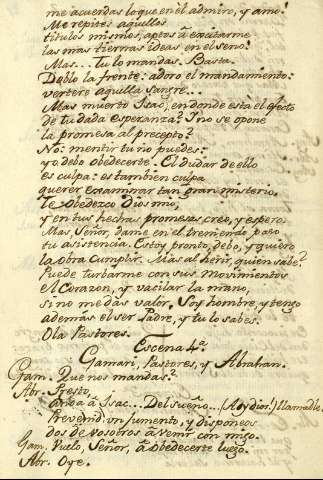 me acuerdas lo que en el admiro, y amo!
Me repites aquellos
titulos mismos, aptos à excitarme
las mas tiernas ideas en el seno!
Mas... tu lo mandas. Basta.
Doblo la frente: adoro el mandamiento:
vertere aquella sangre...
Mas muerto Isac, en donde està el efecto
de tu dada esperanza? I no se opone
la promesa al precepto?
No: mentir tu no puedes:
yo debo obedecerte. El dudar de ello
es culpa: es tambien culpa
querer examinar tan gran misterio.
Te obedezco Dios mio,
y en tus hechas promesas creo, y espero.
Mas, Señor, dame en el tremendo paso
tu asistencia. Estoy pronto, debo, y quiero
la obra cumplir. Mas al herir, quien sabe?
Puede turbarme con sus movimientos
el Corazon, y vacilar la mano,
si no me dàs valor. Soy hombre, y tengo
ademàs el ser Padre, y tu lo sabes.
Ola Pastores.
Escena 4ª.
Gamari, Pastores, y Abrahan.
Gam. Que nos mandas?
Abr. Presto,
anda à Isac... Del sueño... (Ay dios!) llamable.
Prevenid un jumento, y disponeos
dos de vosotros à venir con migo.
Gam. Vuelo, Señor, à obedecerte luego.
Abr. Oye.